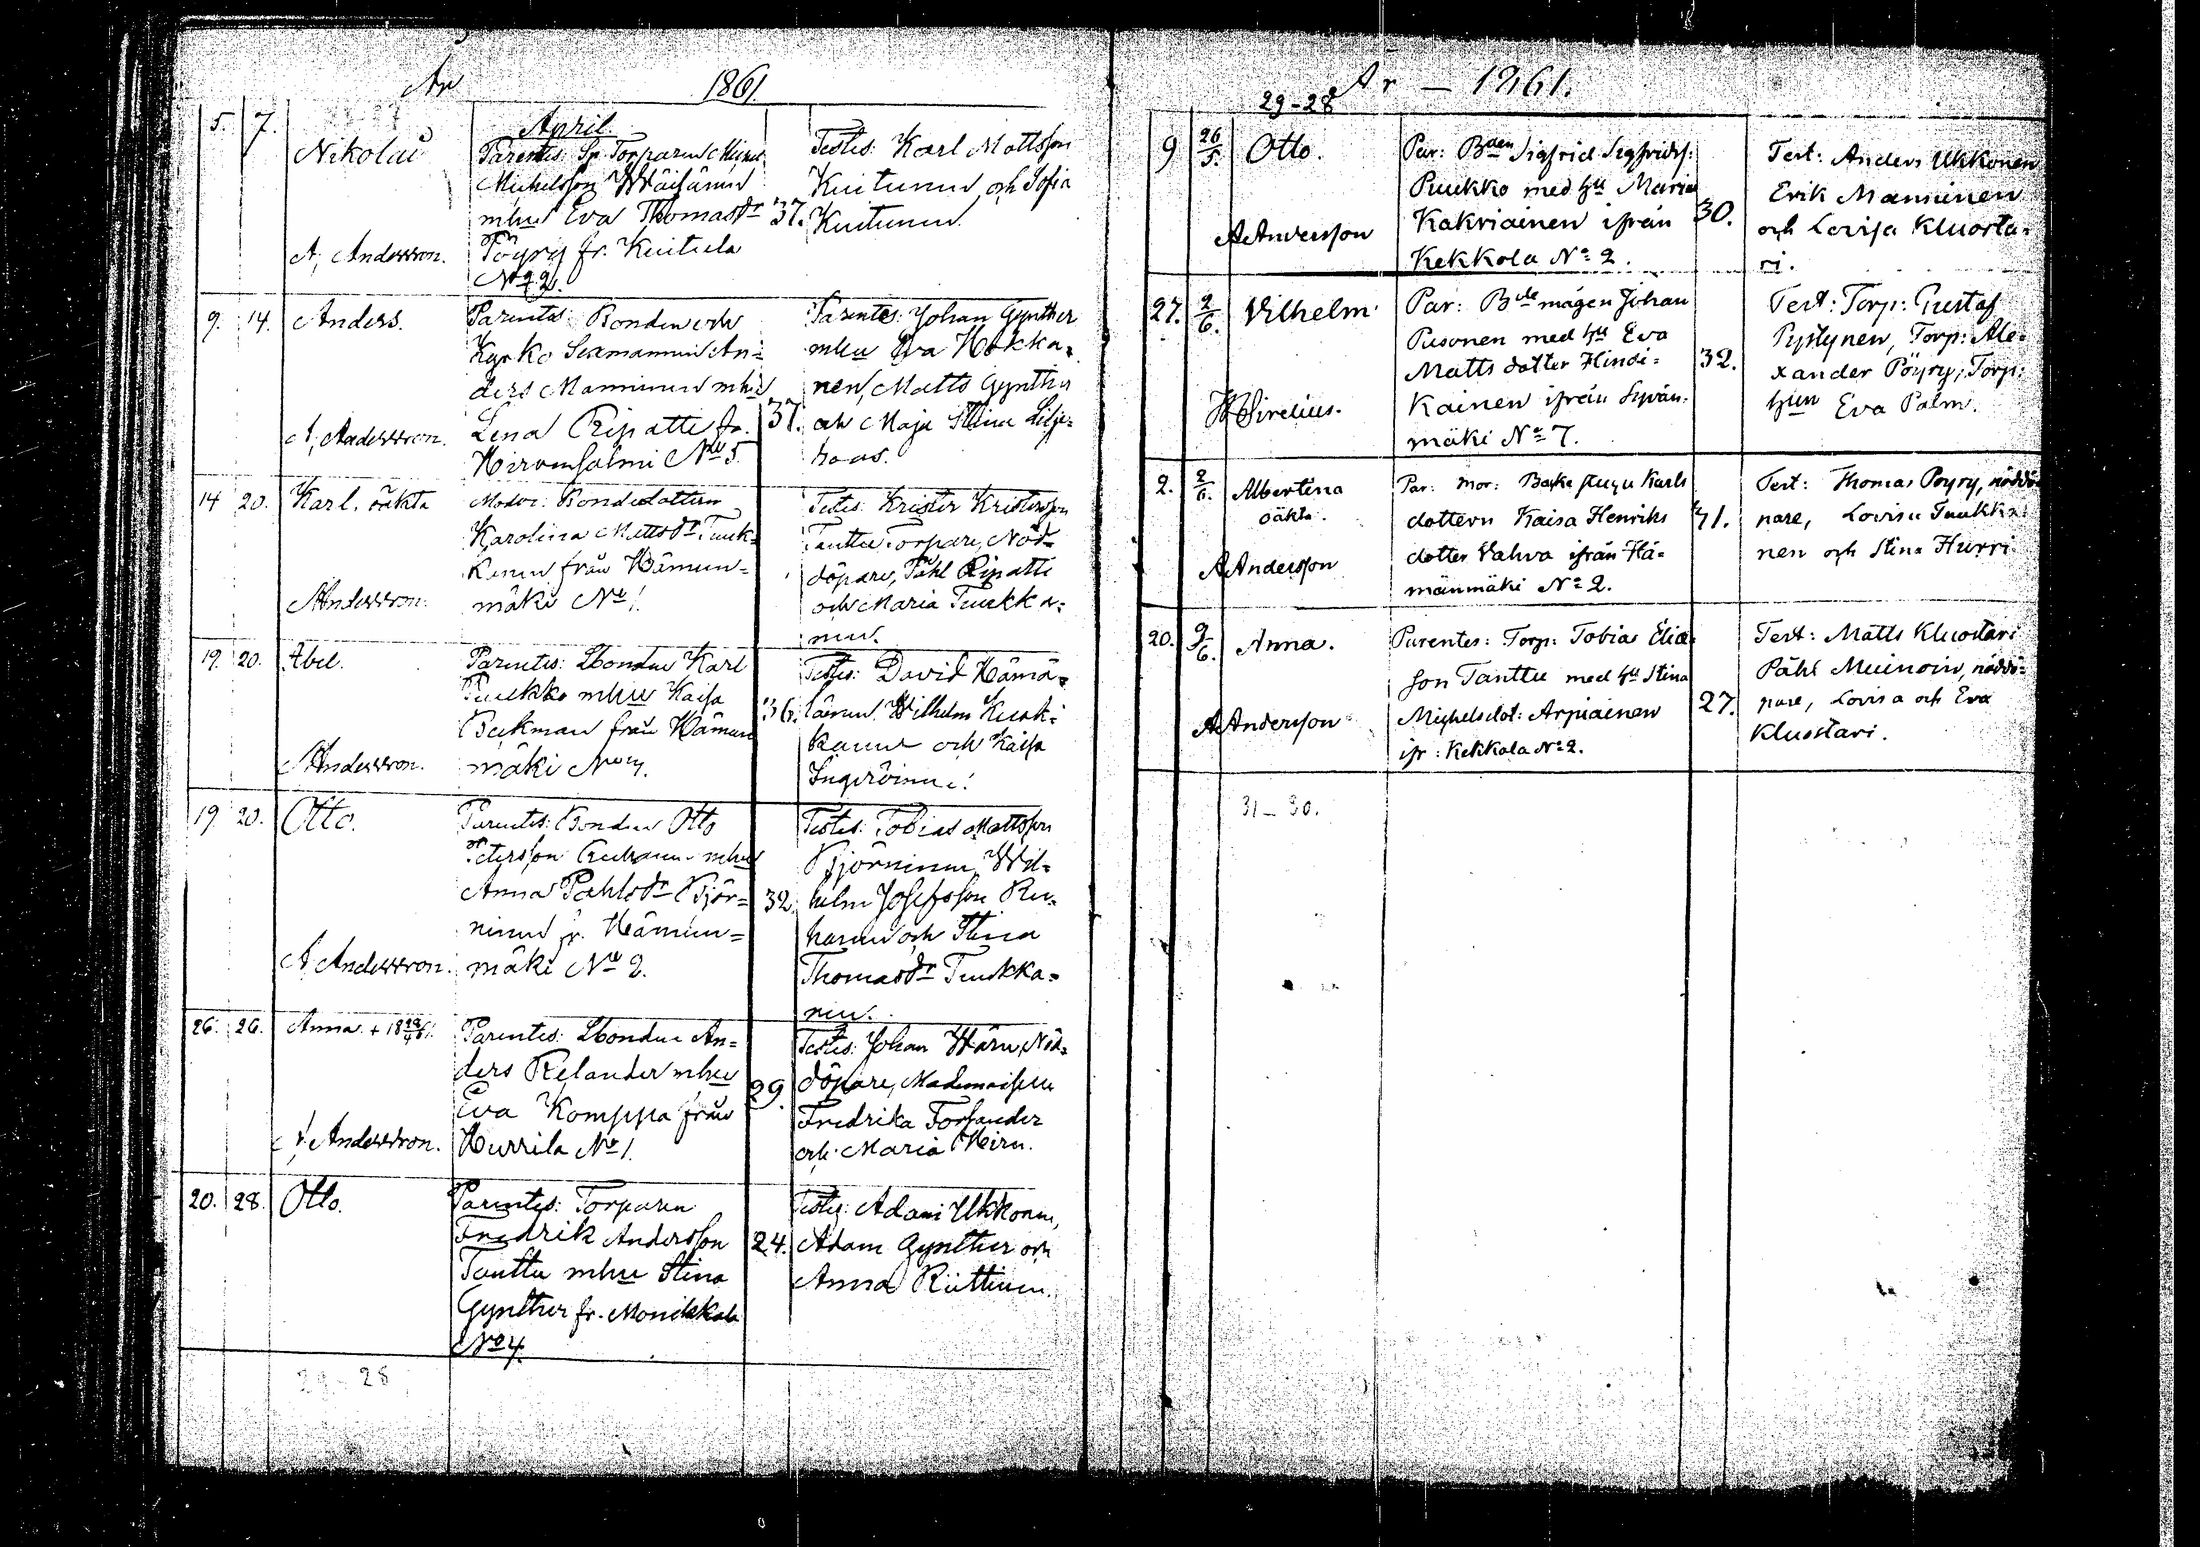 År 1861.
April.
5. 7. Nikolai Parentes: Sp. Torparen
Michelsson Wäisänen
mhu Eva Thomasdr 37.
Pöyry fr. Kuitula
No 22.
A. Andersson.
Testes: Karl Mattsson
Kuitunen och Sofia
Kuitunen.
9. 14. Anders. Parentes: Bonden och
Kyrko Sexmannen An=
ders Manninen mhu
Lena Ripatti fr. 37.
Hirvensalmi No 5.
A. Andersson.
Parentes: Johan Gynther
mhu Eva Hokka=
nen, Matts Gynther
och Maja Stina Lilje=
hoas.
14 20. Karl. oäkta Moder: Bondedottren
Karolina Mattsdr Tuuk=
kanen från Hämeen=
mäki No 1.
Andersson.
Testes: Krister Kristersson
Tanttu Torpare, Nöd=
döpare, Påhl Ripatti
och Maria Tuukka=
nen.
19. 20. Abel. Parentes: Bonden Karl
Puukko mhu Kaisa
Beckman från Hämeen 36.
mäki No 4.
Andersson.
Testes: David Hämä=
läinen, Wilhelm Kuuk=
kanen och Kaisa
Ingeröinen.
19 20. Otto. Parentes: Bonden Otto
Petersson Ruhanen mhu
Anna Påhlsdr Björ= 32.
ninen fr. Hämeen=
mäki No 2.
A. Andersson.
Testes: Tobias Mattsson
Björninen, Wil=
helm Josefsson Ru=
hanen och Stina
Thomasdr Tuukka=
nen.
26. 26. Anna + Parentes: Bonden An=
ders Relander mhu
Eva Komppa från 29.
Hurrila No 1.
A. Andersson.
Testes: Johan Härn, Nöd=
döpare, Mademoiselle
Fredrika Forsander
och Maria Hirn.
20. 28. Otto. Parentes: Torparen
Fredrik Andersson 24.
Tanttu mhu Stina
Gynther fr. Monikkala
No 4.
Testes: Adam Ukkonen,
Adam Gynther och
Anna Riittinen.
29-28
År - 1861.
29-28
9 26/5. Otto. Par: Bden Sigfrid Sigfridss:
Puukko med hu Maria
Kakriainen ifrån 30.
Kekkola No 2.
A Andersson
Test: Anders Ukkonen
Erik Manninen
och Lovisa Kluosta=
ri.
27. 2/6. Vilhelm. Par: Bde mågen Johan
Pusonen med hu Eva
Matts dotter Hindi= 32.
kainen ifrån Syvän=
mäki No 7.
Sirelius.
Test: Torp: Gustaf
Pystynen, Torp: Ale=
xander Pöyry, Torp:
hun Eva Palm.
2. 2/6. Albertina
oäkta.
Par: mor: Backstugu Karls
dottern Kaisa Henriks 41.
dotter Vahva ifrån Hä=
mänmäki No 2.
A Andersson
Test: Thomas Pöyry, nöddö=
pare, Lovisa Tuukka=
nen och Stina Hurri
20. 9/6. Anna. Parentes: Torp: Tobias Elias
son Tanttu med hu Stina
Michelsdot: Arpiainen 27.
ifr: Kekkola No 2.
A Andersson
Test: Matts Kluostari
Påhl Muinoin, nöddö=
pare, Lovisa och Eva
Kluostari.
31-30.